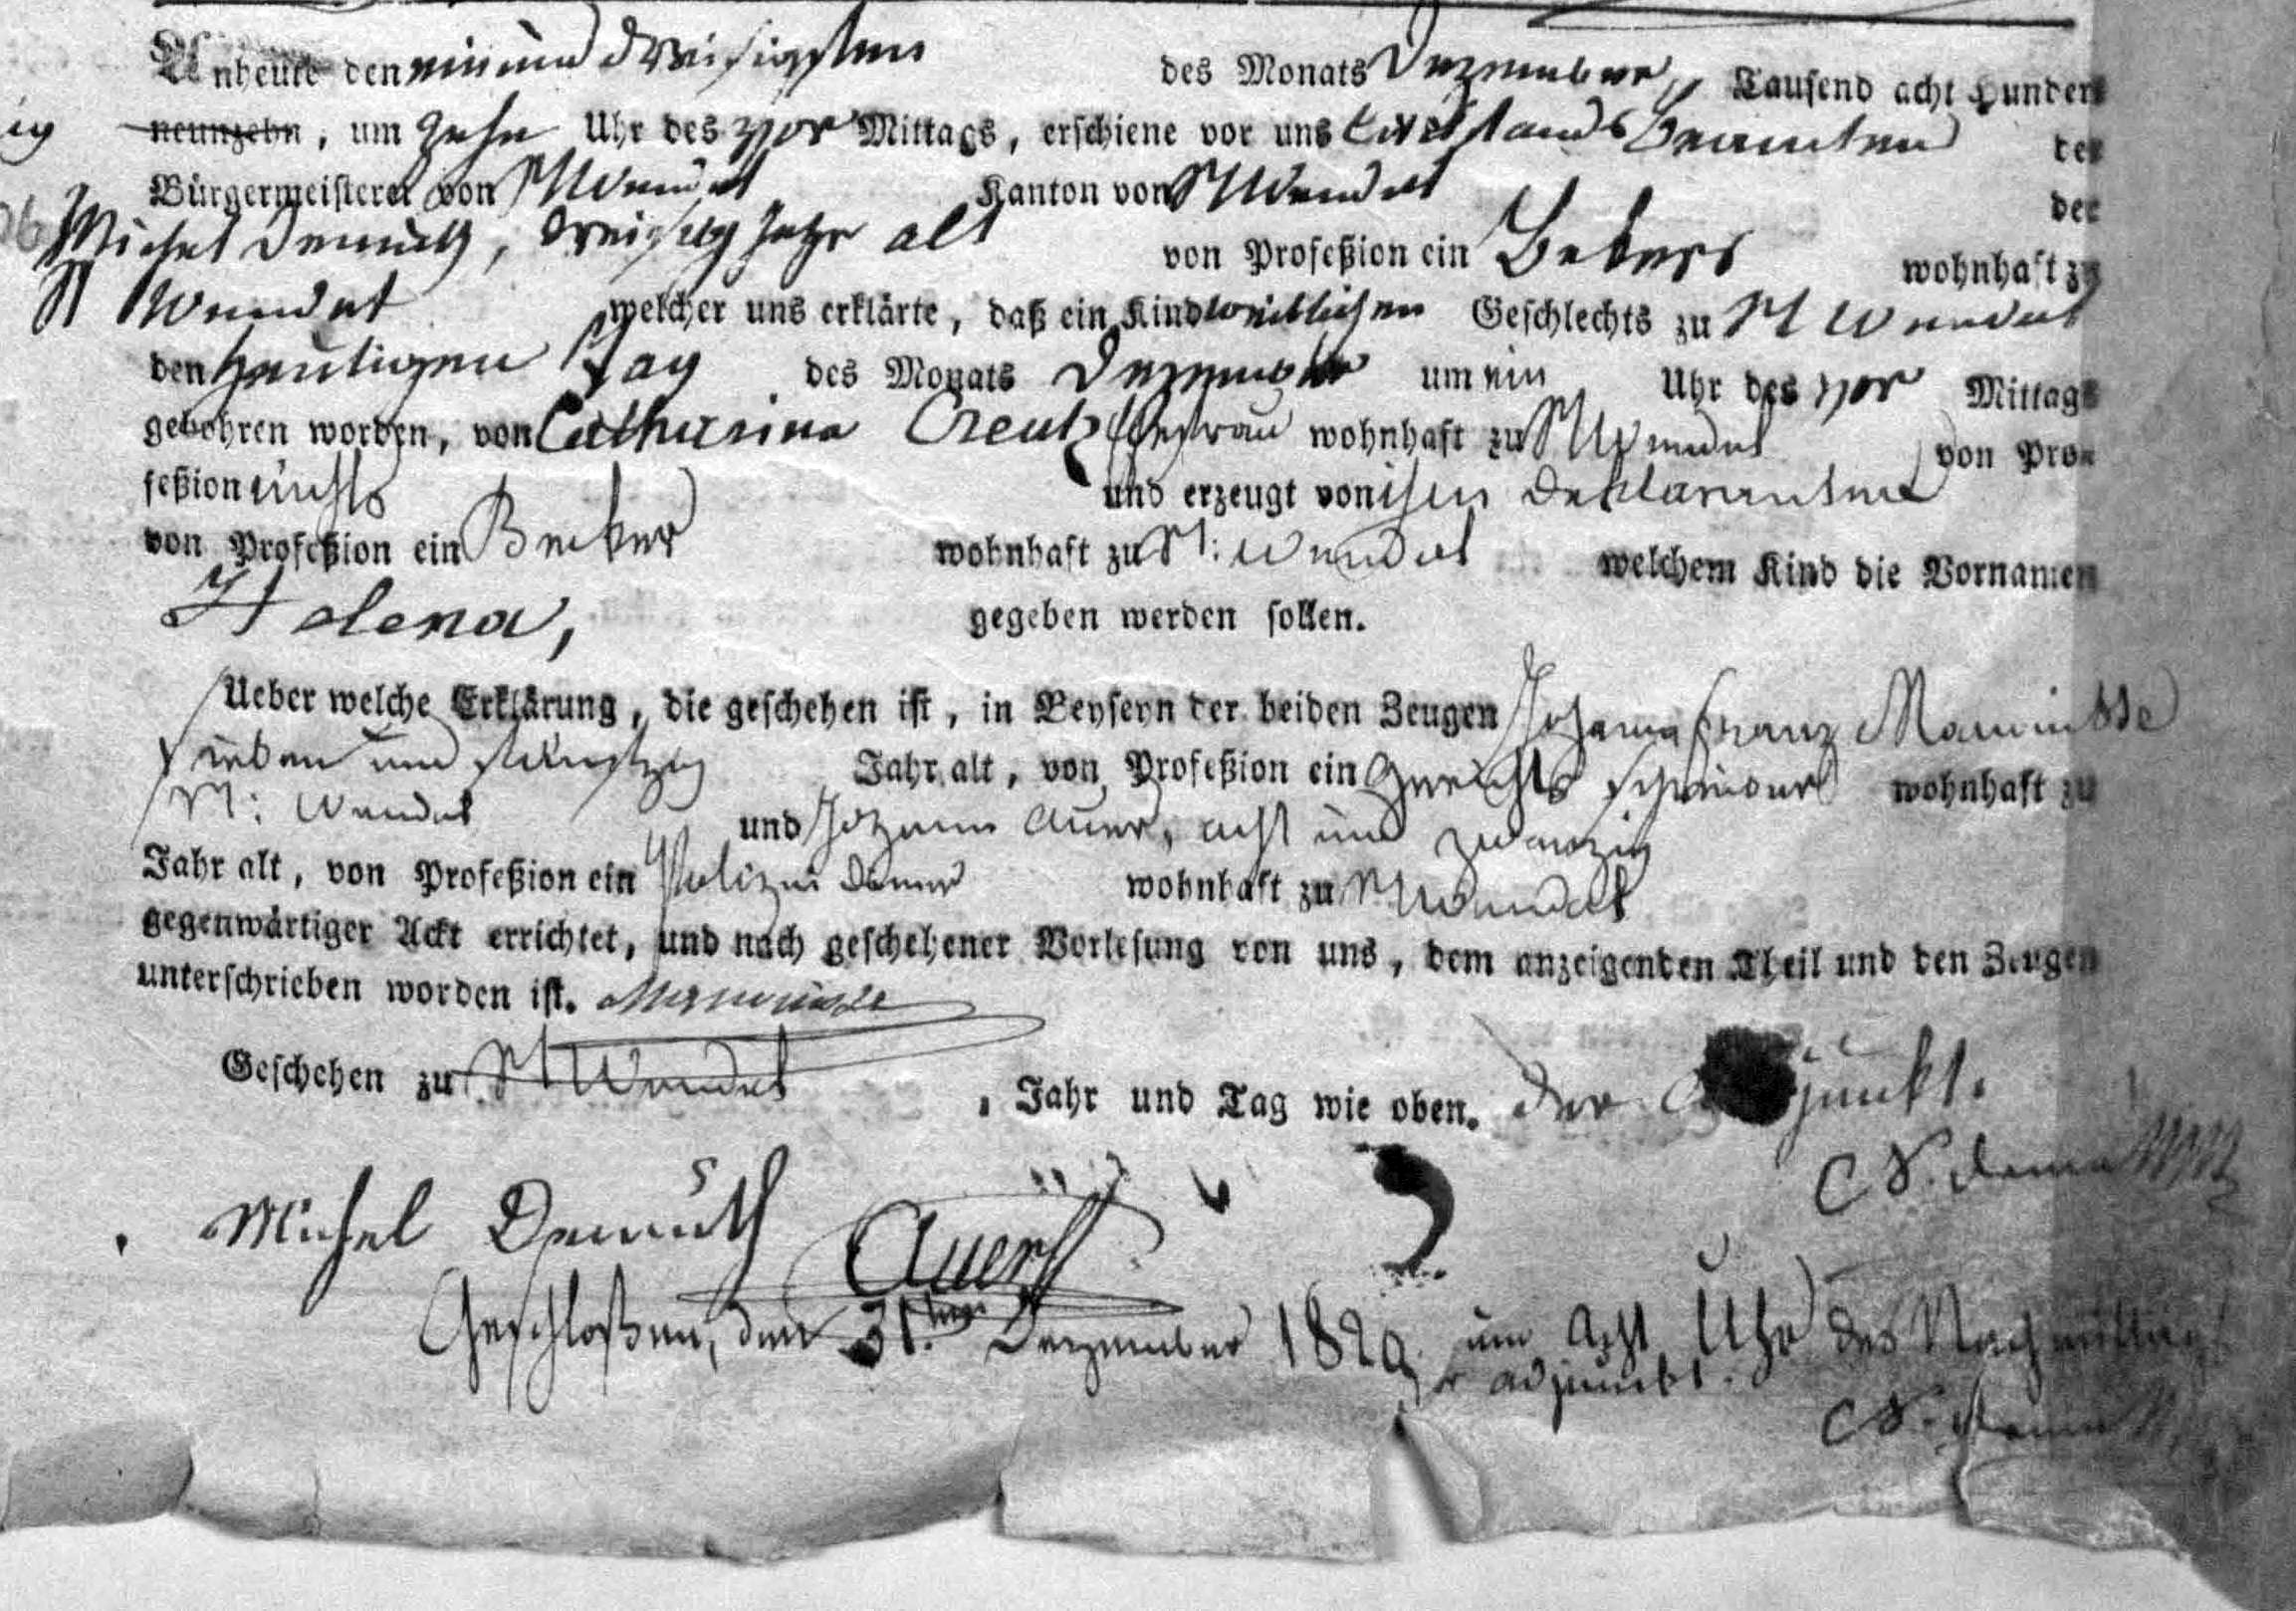 Anheute den ein und dreisigsten des Monats Dezember, Tausend acht hundert
ig neunzehn, um zehn Uhr des vor Mittags, erschiene vor uns Civilstands Beamten der
Bürgermeisterei von St Wendel Kanton von St Wendel der
Michel Demuth, dreißig Jahr alt von Profeßion ein Beker wohnhaft zu
St Wendel welcher uns erklärte, daß ein Kind weiblichen Geschlechts zu St Wendel
den heutigen Tag des Monats Dezember um ein Uhr des vor Mittags
gebohren worden, von Catharina Creutz Ehefrau wohnhaft zu St Wendel von Pro-
feßion nichts und erzeugt von ihm Deklaranten
von Profeßion ein Becker wohnhaft zu St: Wendel welchem Kind die Vornamen
Helena, gegeben werden sollen.
Ueber welche Erklärung, die geschehen ist, in Beyseyn der beiden Zeugen Johann Franz
sieben und Jahr alt, von Profeßion ein Gerichts schreiber wohnhaft zu
St: Wendel und Johann Auer, acht und zwanzig
Jahr alt, von Profeßion ein Polizei Diener wohnhaft zu St Wendel
gegenwärtiger Ackt errichtet, und nach geschehener Vorlesung von uns, dem anzeigenden Theil und den Zeugen
unterschrieben worden ist.
Geschehen zu St Wendel, Jahr und Tag wie oben. Der junkt.
Michel Demuth Auer
Geschloßen, den 31.ten Dezember 1820 um acht Uhr des Nachmittags
adjunkt.